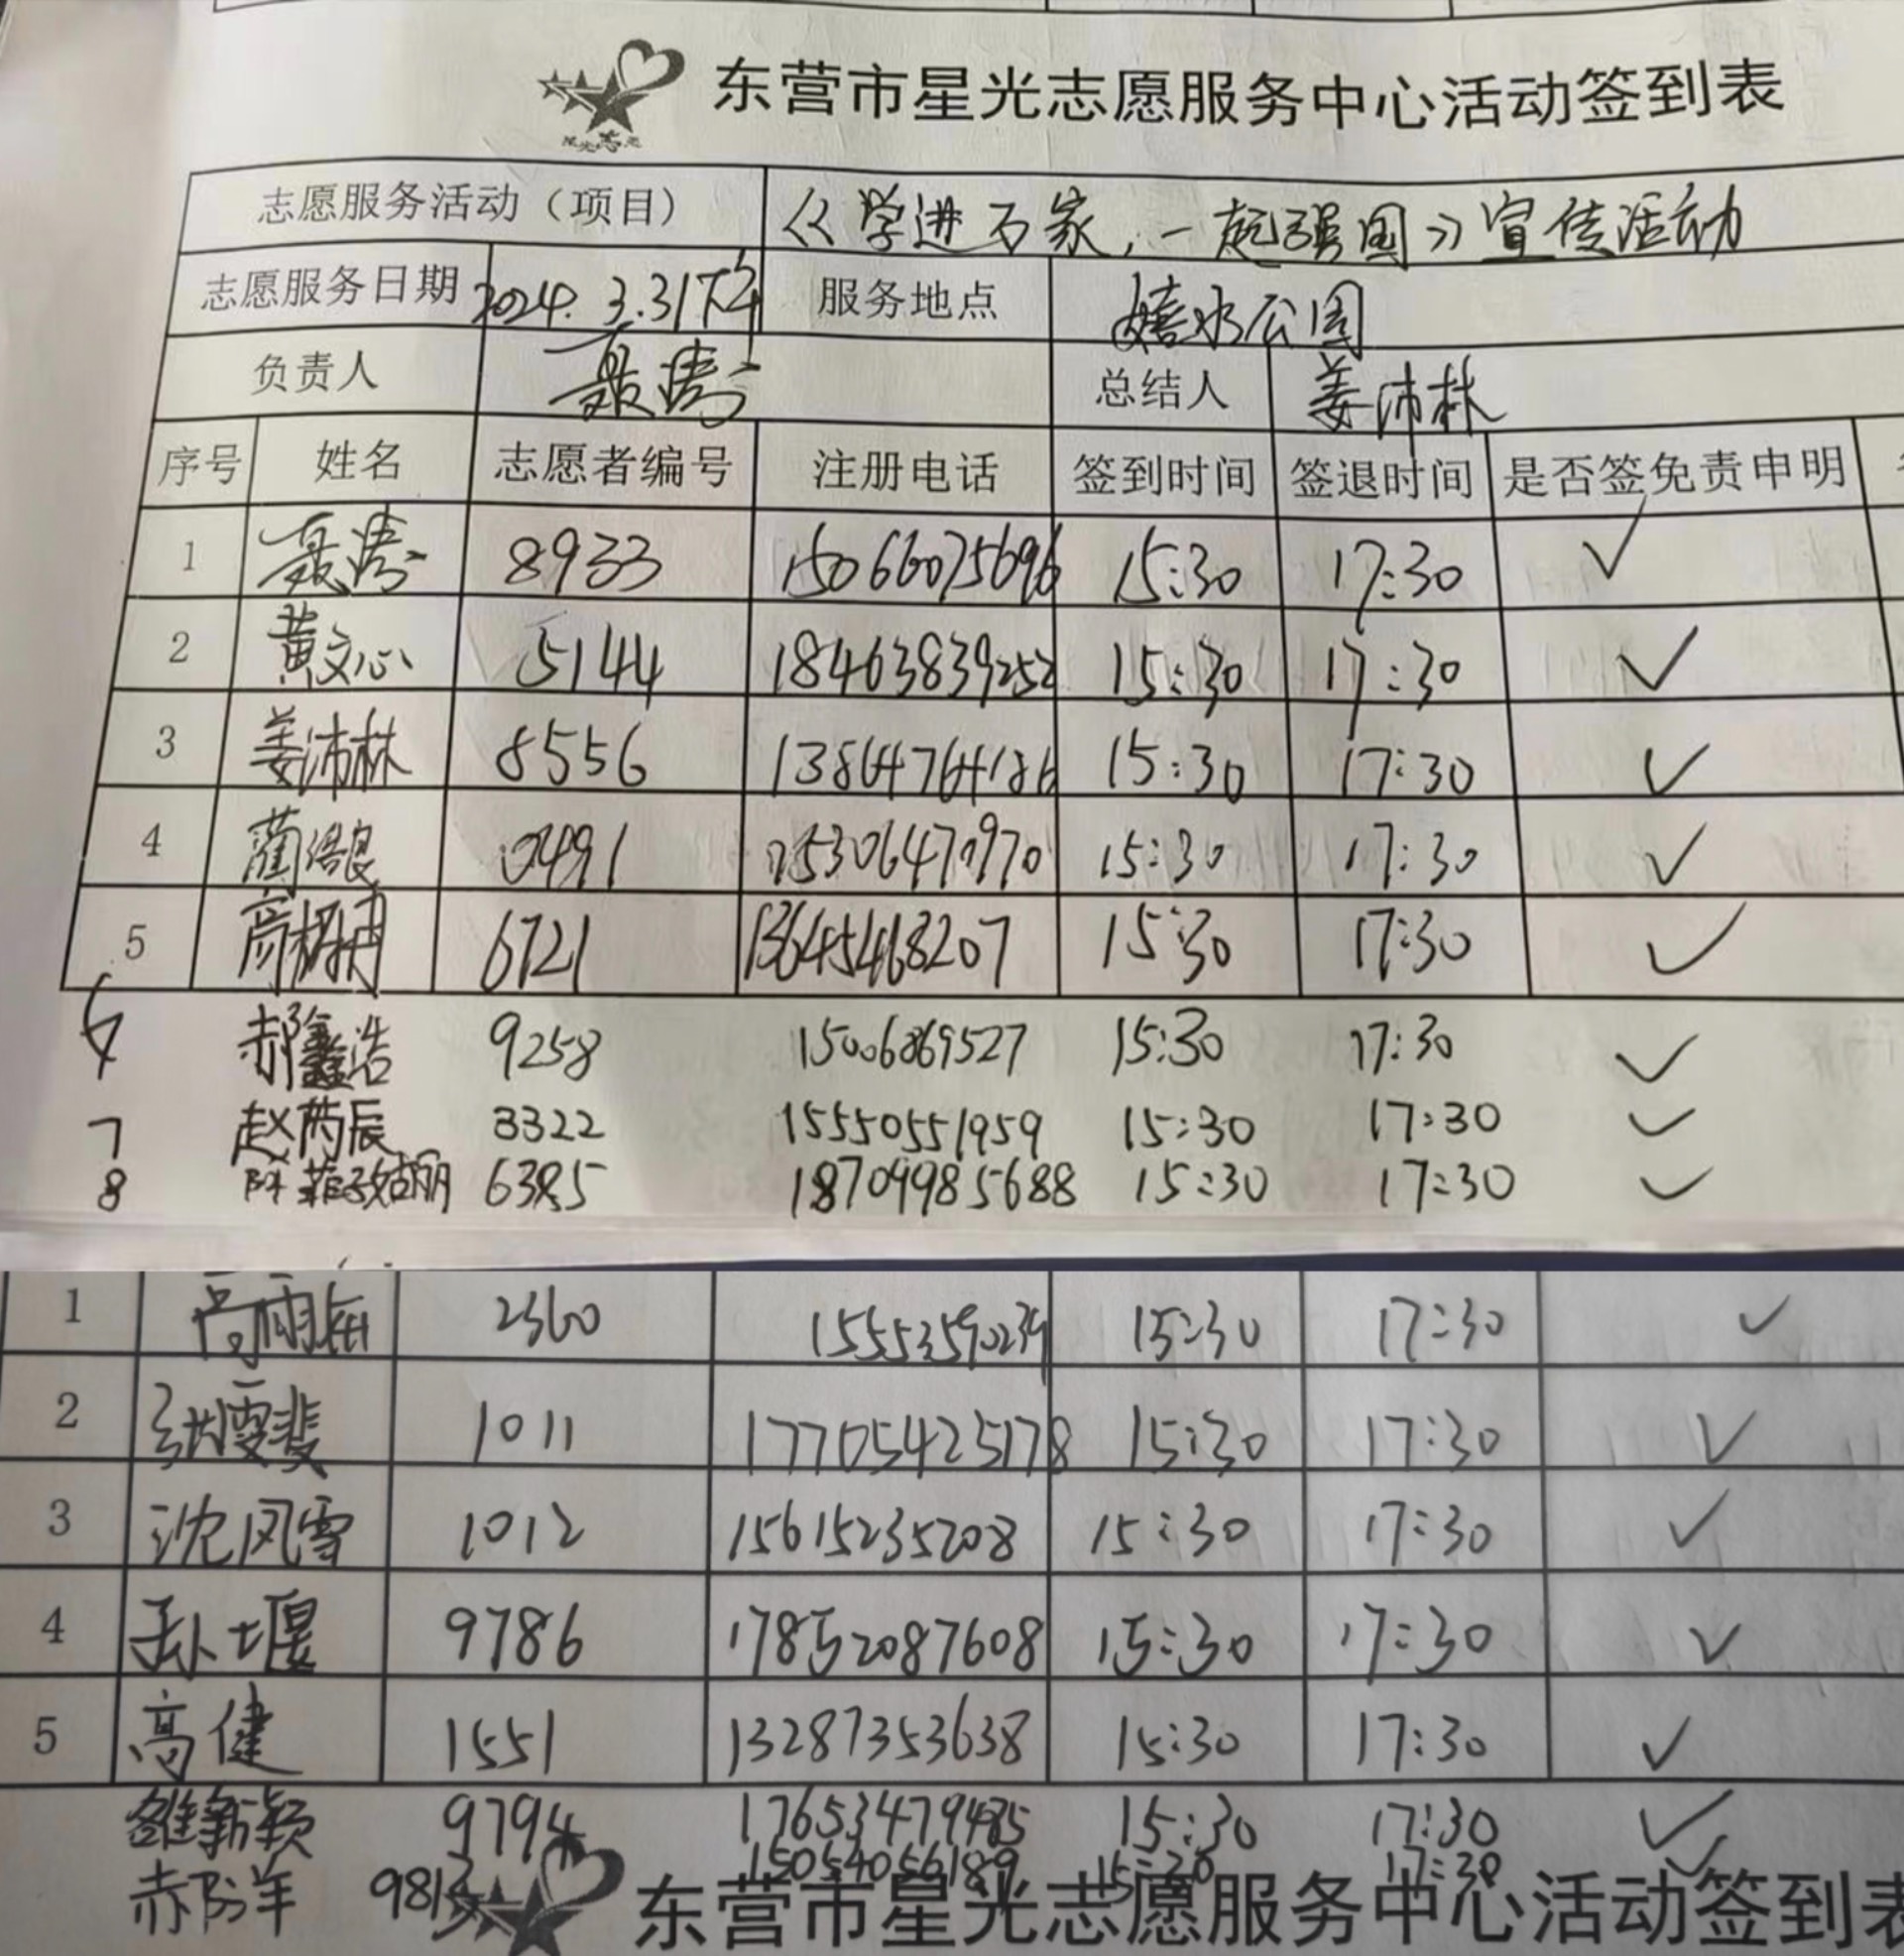 东营市星光志愿服务中心活动签到表
志愿服务活动（项目） 《学进万家，一起强国》宣传活动
志愿服务日期 2024.3.31下午 服务地点 嬉水公园
负责人 聂涛 总结人 姜沛林
序号 姓名 志愿者编号 注册电话 签到时间 签退时间 是否签免责申明
1 聂涛 8933 15066075696 15:30 17:30 ✓
2 黄文心 5144 18463839252 15:30 17:30 ✓
3 姜沛林 8556 13864764186 15:30 17:30 ✓
4 0491 15:30 17:30 ✓
5 6721 13645468207 15:30 17:30 ✓
6 郝鑫浩 9258 15006869527 15:30 17:30 ✓
7 赵芮辰 3322 15550551959 15:30 17:30 ✓
8 6385 18704985688 15:30 17:30 ✓
1 高雨 2360 15553590239 15:30 17:30 ✓
2 张雯斐 1011 17705425178 15:30 17:30 ✓
3 沈风雪 1012 15615235208 15:30 17:30 ✓
4 孙堰 9786 17852087608 15:30 17:30 ✓
5 高健 1551 13287353638 15:30 17:30 ✓
雒新颖 9794 17653479485 15:30 17:30 ✓
9813 15054056189 15:30 17:30 ✓
东营市星光志愿服务中心活动签到表